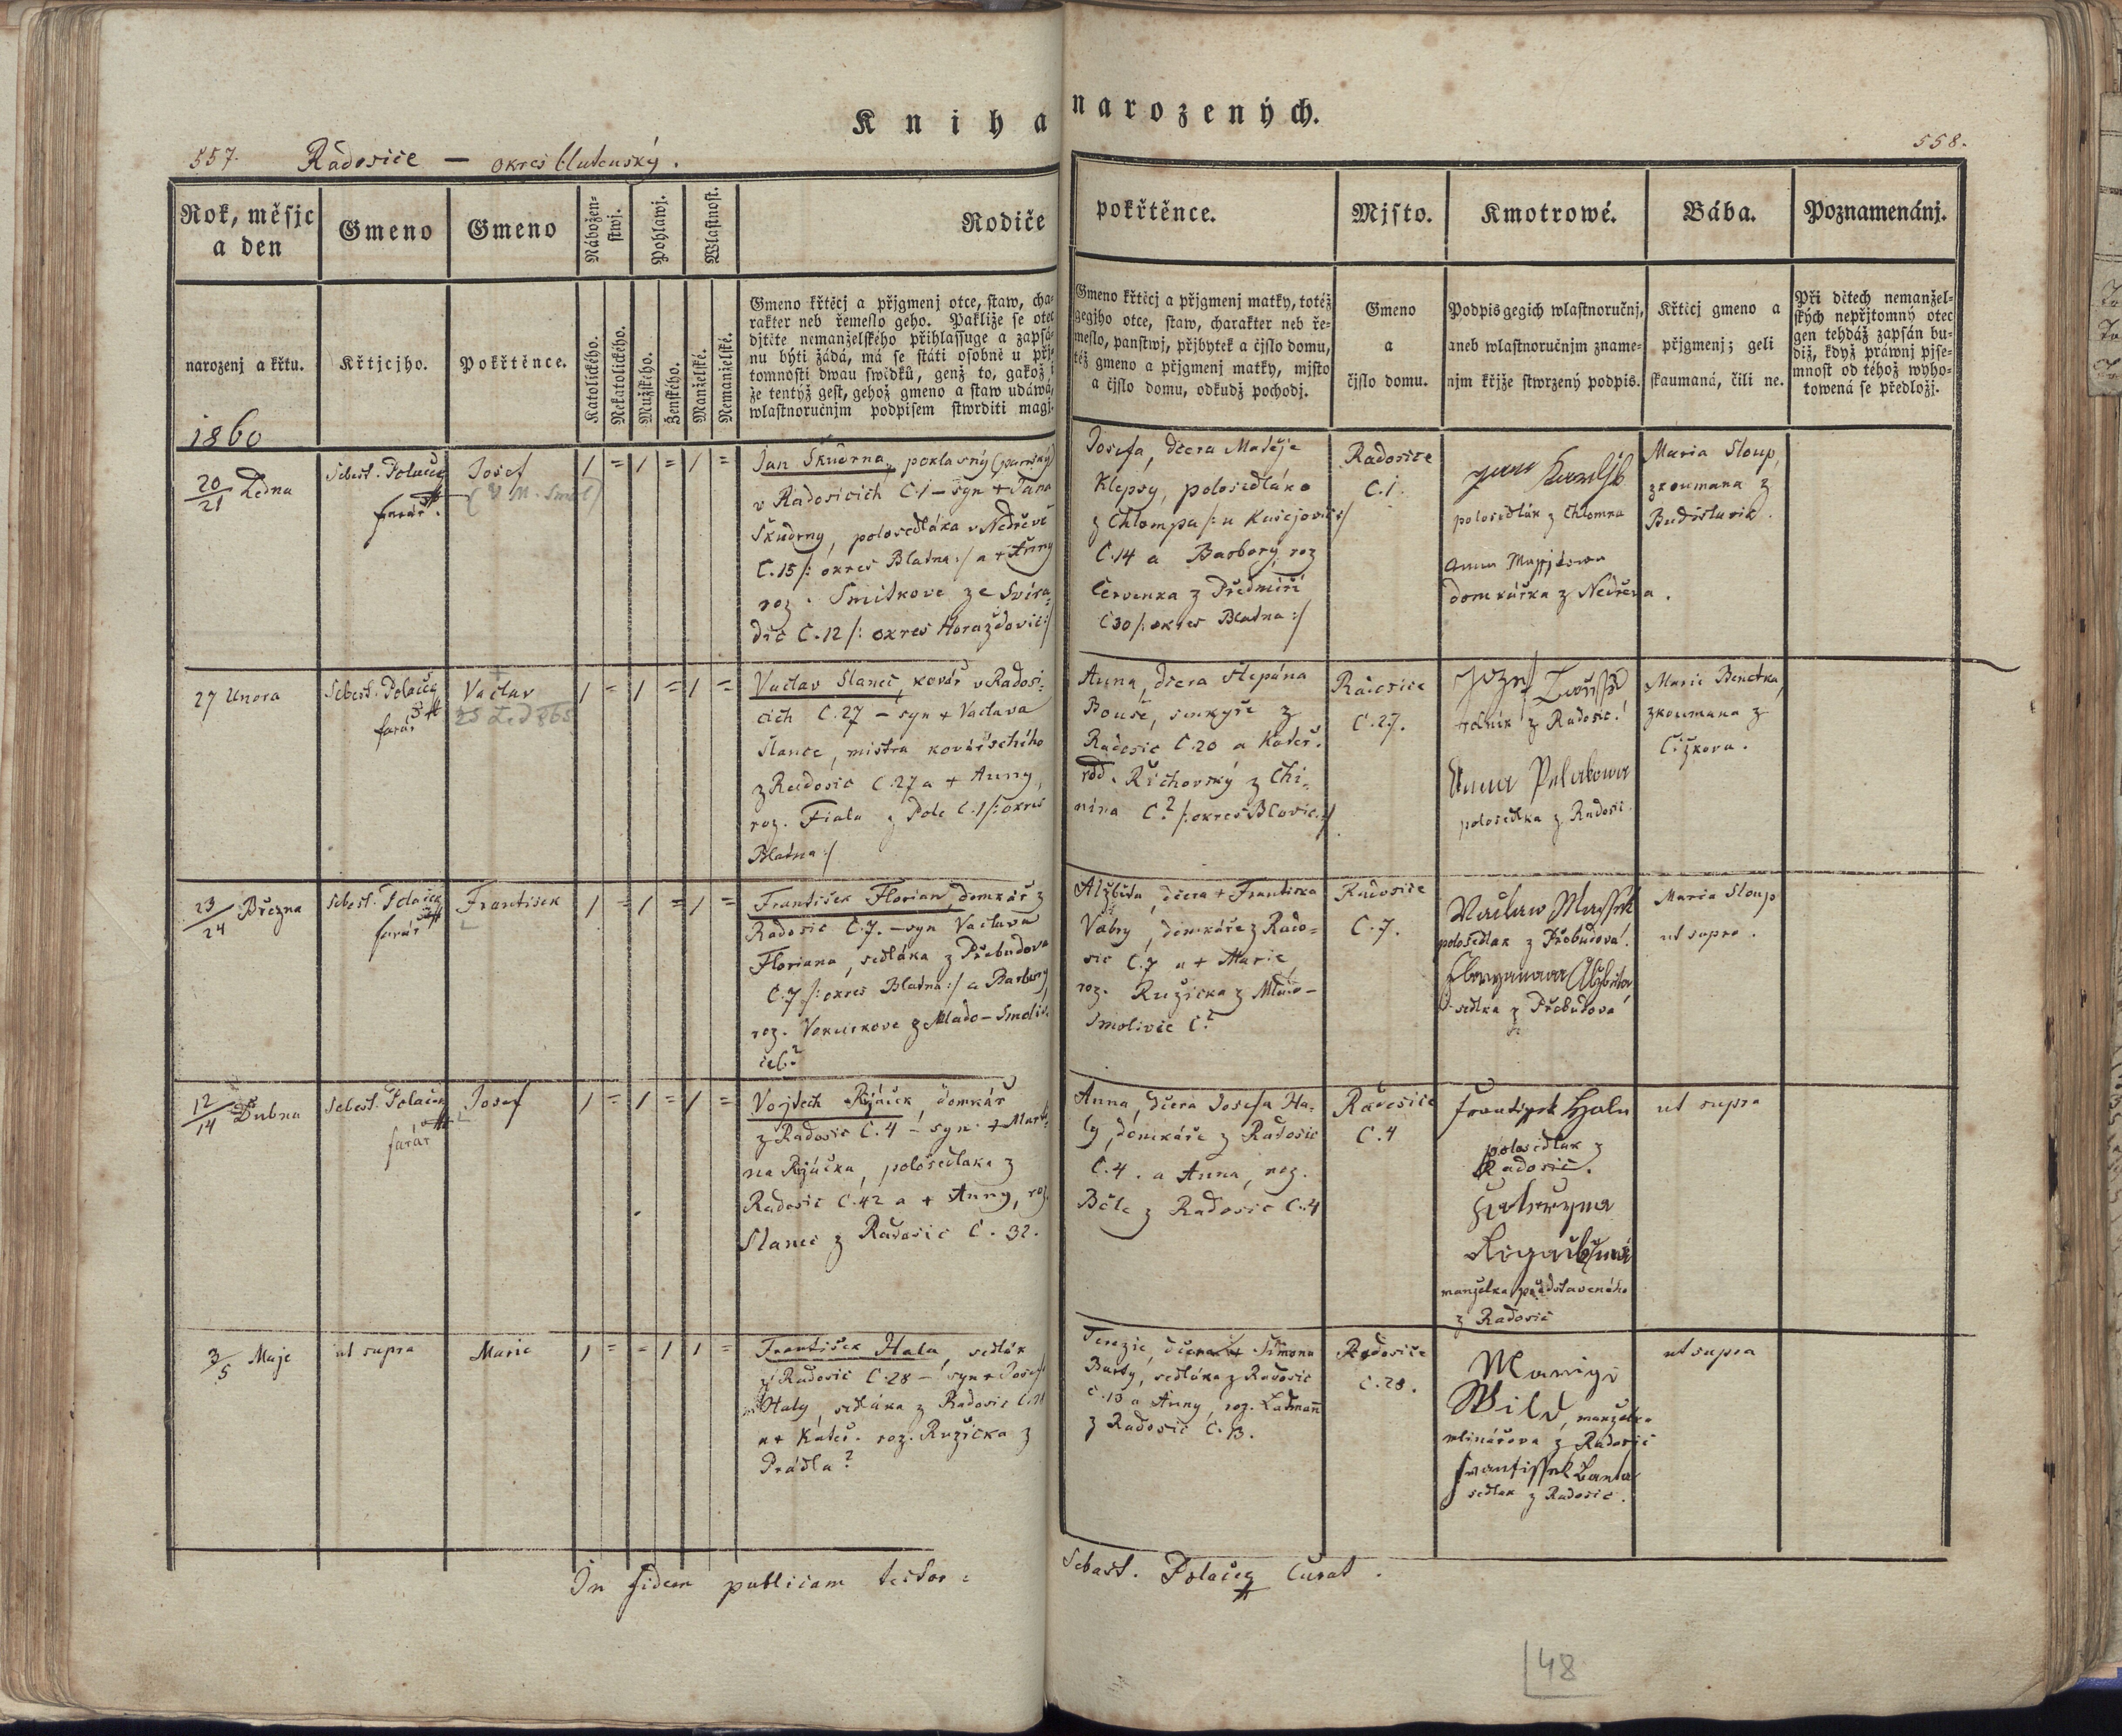 Kniha narozených.
557. Radosice — okres blatenský.
558.
Rok, měsjc
a den
Gmeno
Gmeno
Nábožen-
stwj.
Pohlawj.
Wlastnost.
Rodiče
pokřtěnce.
Mjsto.
Kmotrowé.
Bába.
Poznamenánj.
narozenj a křtu.
Křtjcjho.
Pokřtěnce.
Katolického.
Nekatolického.
Mužského.
Ženského.
Manželské.
Nemanželské.
Gmeno křtěcj a přjgmenj otce, staw, cha-
rakter neb řemeslo geho. Pakliže se otec
djtěte nemanželského přihlassuge a zapsá-
nu býti žádá, má se státi osobně u přj-
tomnosti dwau swědků, genž to, gakož i
že tentýž gest, gehož gmeno a staw udáwá,
wlastnoručnjm podpisem stwrditi magj.
Gmeno křtěcj a přjgmenj matky, totéž
gegjho otce, staw, charakter neb ře-
meslo, panstwj, přjbytek a čjslo domu,
též gmeno a přjgmenj matky, mjsto
a čjslo domu, odkudž pochodj.
Gmeno
a
čjslo domu.
Podpis gegich wlastnoručnj,
aneb wlastnoručnjm zname-
njm křjže stwrzený podpis.
Křtěcj gmeno a
přjgmenj; geli
skaumaná, čili ne.
Při dětech nemanžel-
ských nepřjtomný otec
gen tehdáž zapsán bu-
diž, když práwnj pjse-
mnost od téhož wyho-
towená se předložj.
1860
20/21 Ledna
Sebest. Polaček
farář.
Josef
Jan Škudrna, poklasný (panský)
v Radosicích Č.1 – syn + Jana
Škudrny, polosedláka v Nedřevě
Č.15 /: okres Blatna:/ a + Anny
roz. Smitkove ze Svira-
dic Č.12 /: okres Horažďovic:/
Josefa, dcera Matěje
Klepsy, polosedláka
z Chlompa /: u Kasejovic:/
Č.14 a Barbory, roz
Červenka z Předmíří
Č30 /: okres Blatna:/
Radosice
Č.1.
polosedlák z Chlomna
domkářka z Nedřeva.
Maria Sloup,
zkoumana z
Budislavic.
27 Unora
Sebest. Polaček
farář
Vaclav
25 Led 865
Vaclav Slanec, kovář v Radosi-
cich Č.27 – syn + Vaclava
Slance, mistra kovářského
z Radosic Č.27 a + Anny,
roz. Fiala z Pole Č.1 /: okres
Blatna:/
Anna, dcera Štěpána
Bouše, z
Radosic Č.20 a Kateř.
rod. Řichovský z Chi-
nina Č.? /: okres Blovic:/
Radosice
Č.27.
rolník z Radosic.
Anna
polosedlka z Radosic
Marie Benetka,
zkoumana z
Čížkova.
23/24 Března
Sebest. Polaček
farář
František
František Florian, domkář z
Radosic Č.7. – syn Vaclava
Floriana, sedláka z Přebudova
Č.7 /: okres Blatna:/ a Barbory
roz. z Mlado-Smoliv-
ceč?
Alžběta, dcera + Františka
Vabry, domkáře z Rado-
sic Č.7 a + Marie,
roz. Ružicka z Mlado-
Smolivic Č.?
Radosice
Č.7.
Waclaw Massek
polosedlak z Přebudova.
sedlka z Přebudova
Maria Sloup
ut supra.
12/14 Dubna
Sebest. Polaček
farář
Josef
Vojtech Rojáček, domkář
z Radosic Č.4 – syn + Marti-
na Rojáčka, polosedlaka z
Radosic Č.42 a + Anny, roz.
Slanec z Radosic Č. 32.
Anna, dcera Josefa Ha-
ly, domkáře z Radosic
Č.4. a Anna, roz.
Běle z Radosic Č.4
Radosice
Č.4
Frantissek Hala
polosedlak z
Radosic.
Kateryna
manželka představeného
z Radosic
ut supra
3/5 Maje
ut supra
Marie
František Hala, sedlák
z Radosic Č.28 – syn + Josefa
Haly, sedláka z Radosic
a + Kateř. roz. Ružicka z
Prádla?
Terezie, dcera Šimona
Barty, sedláka z Radosic
Č.13 a Anny, roz. Ladmann
z Radosic Č.13.
Radosice
Č.28.
Marrige
Wild, manželka
mlinářova z Radosic
Frantissek Barta
sedlak z Radosic.
ut supra
In fidem publicam testor: Sebast. Polaček Curat.
48